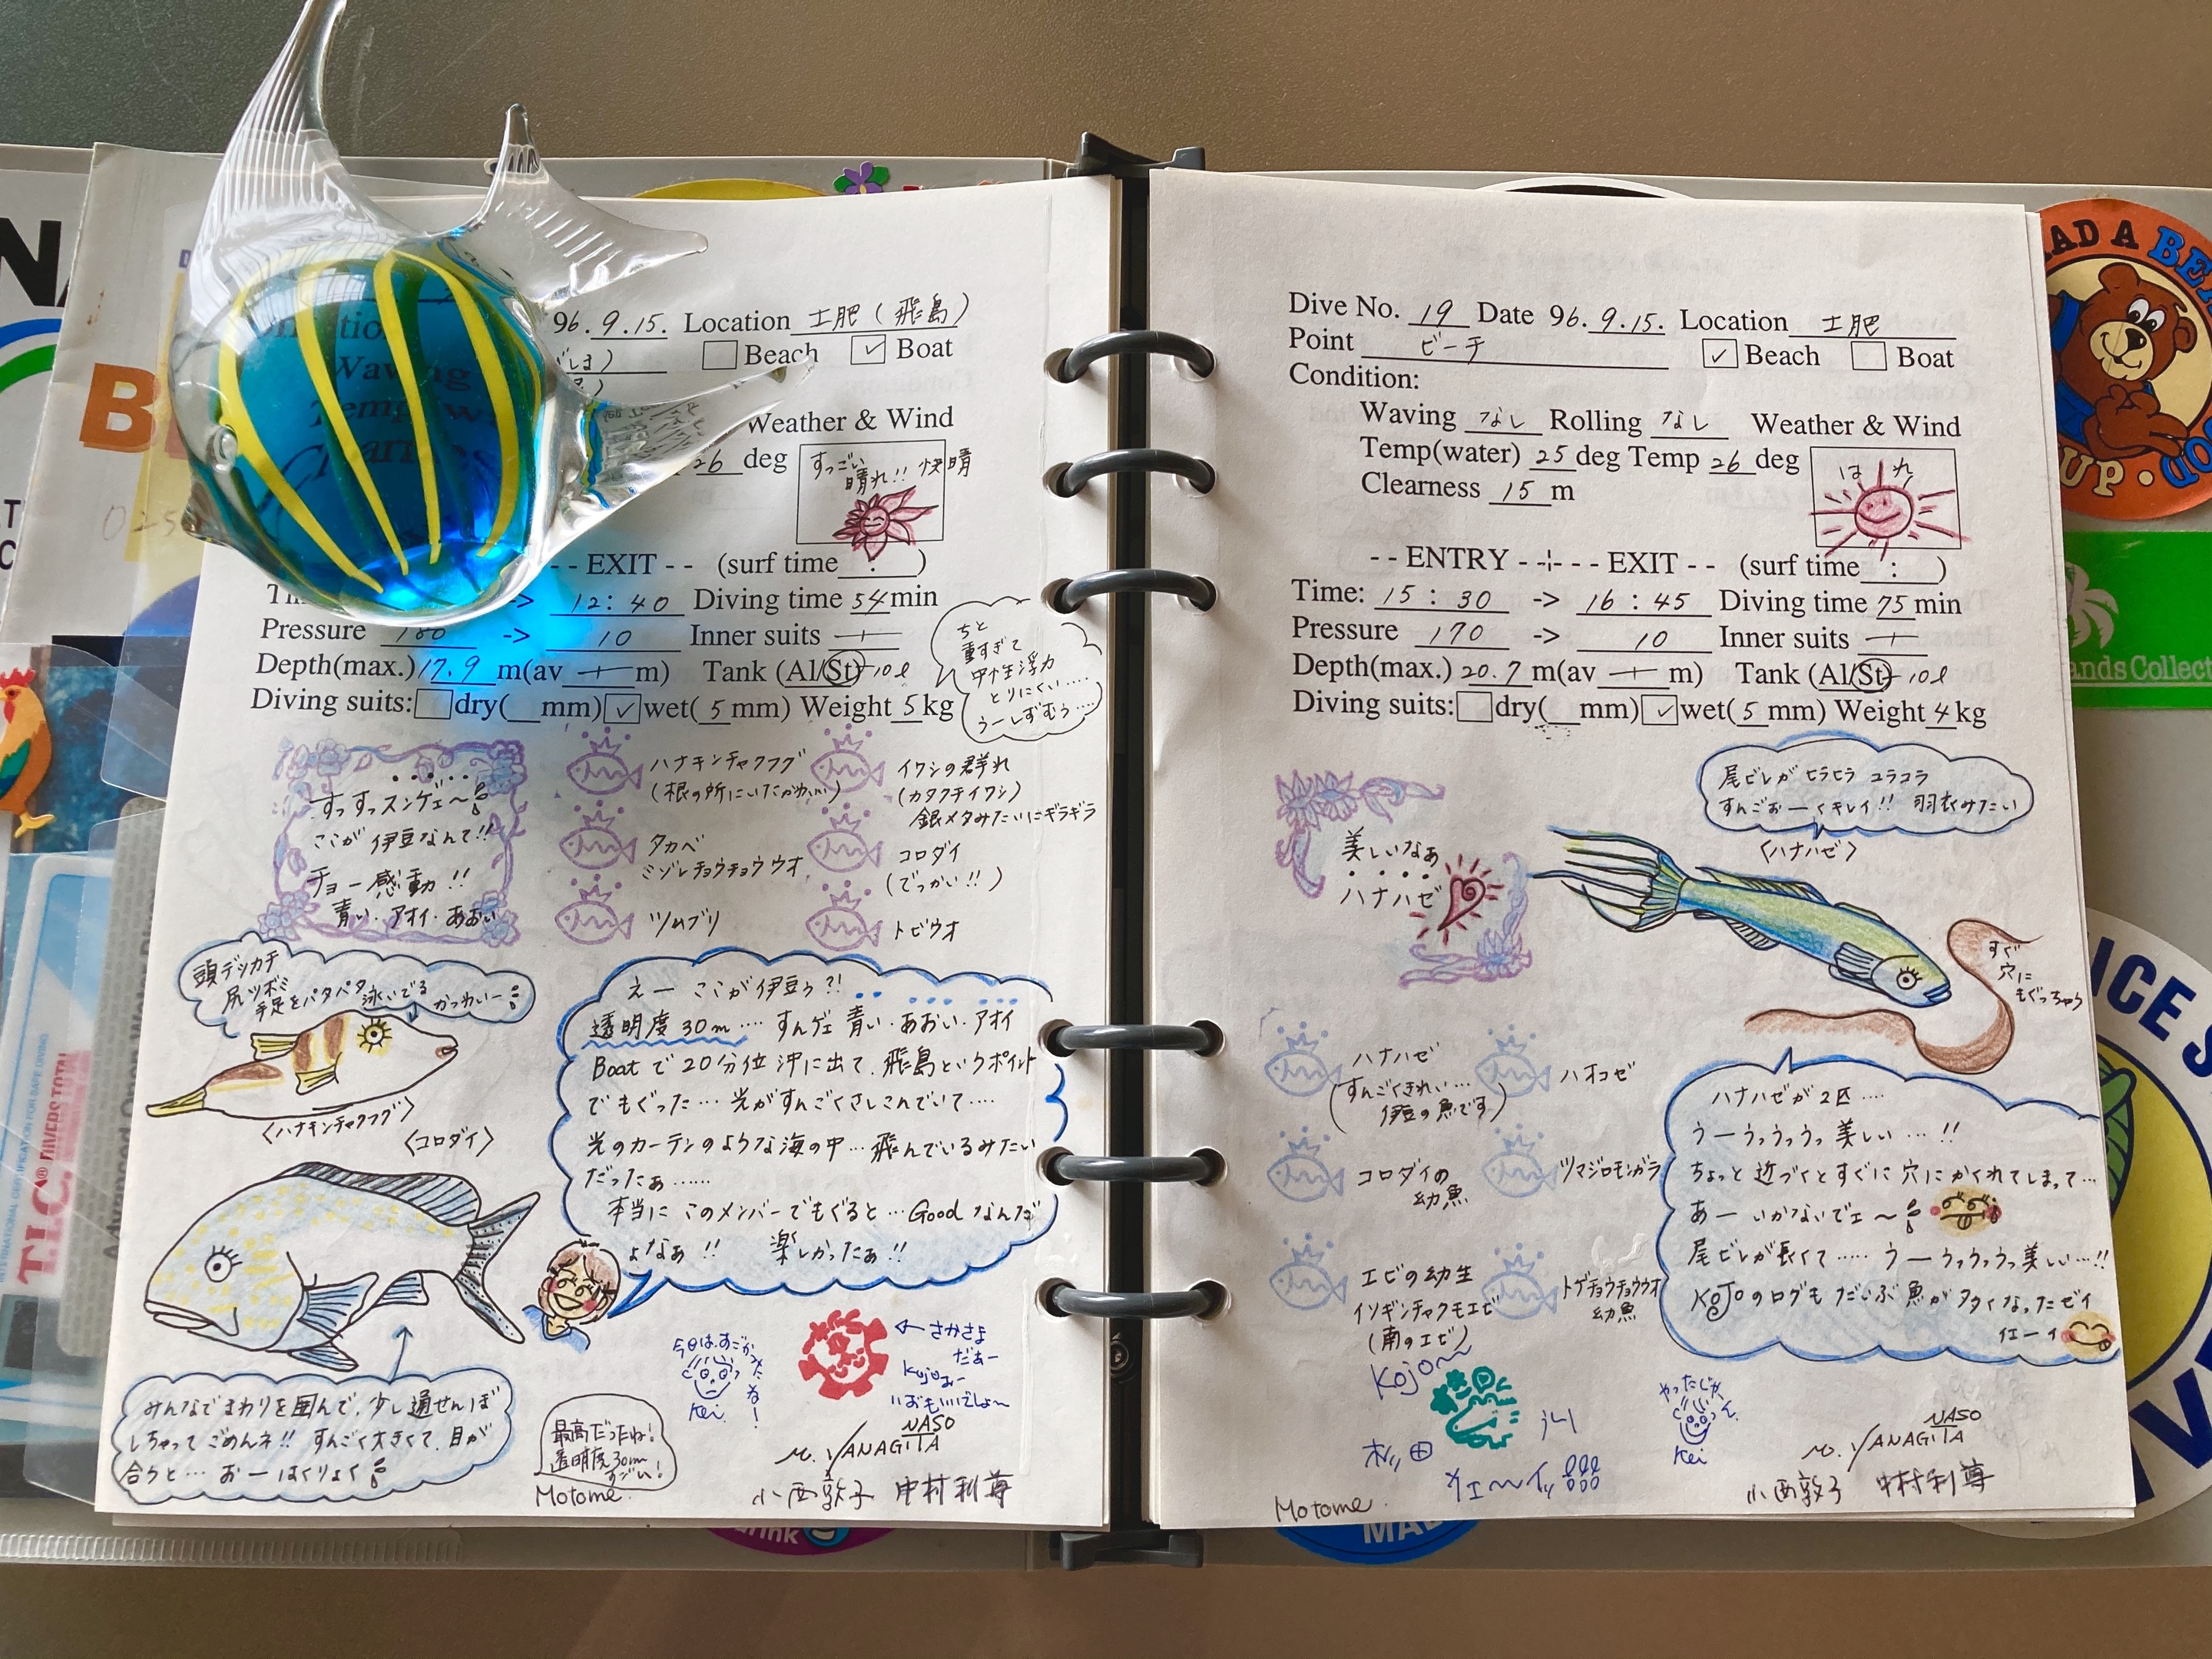 96. 9. 15. Location 土肥（飛島）
Beach ✓ Boat
Weather & Wind
26 deg
すっごい
晴れ!! 快晴
-- EXIT -- (surf time : )
-> 12:40 Diving time 54 min
Pressure 180 -> 10 Inner suits
Depth(max.) 17.9 m(av m) Tank (Al/St) 10ℓ
Diving suits: dry( mm) ✓ wet( 5 mm) Weight 5 kg
ちと
重すぎて
中性浮力
とりにくい....
うーしずむぅ....
すっすっスンゲェ〜
ここが伊豆なんて!!
チョー感動!!
青い・アオイ・あおい
ハナキンチャクフグ
(根の所にいたかわいい)
タカベ
ミゾレチョウチョウウオ
ツムブリ
イワシの群れ
(カタクチイワシ)
銀メタみたいにギラギラ
コロダイ
(でっかい!!)
トビウオ
頭デッカチ
尻ツボミ
手足をパタパタ泳いでる かっわいー
〈ハナキンチャクフグ〉
〈コロダイ〉
みんなでまわりを囲んで、少し通せんぼ
しちゃってごめんネ!! すんごく大きくて、目が
合うと… おーはくりょく
えー ここが伊豆ゥ?!
透明度30m…. すんゲェ 青い・あおい・アオイ
Boatで20分位沖に出て、飛島というポイント
でもぐった… 光がすんごくさしこんでいて….
光のカーテンのような海の中… 飛んでいるみたい
だったぁ……
本当に このメンバーでもぐると… Good なんだ
よなぁ!! 楽しかったぁ!!
今日は、すごかったね!
Kei
← さかさま
だぁー
Kojoぉー
いおもいでしょ〜
最高だったね!
透明度30m
すごい!
Motome.
M. YANAGITA
NASO
小西敦子 中村利尊
Dive No. 19 Date 96. 9. 15. Location 土肥
Point ビーチ ✓ Beach Boat
Condition:
Waving なし Rolling なし Weather & Wind
Temp(water) 25 deg Temp 26 deg
Clearness 15 m
はれ
-- ENTRY ----- EXIT -- (surf time : )
Time: 15:30 -> 16:45 Diving time 75 min
Pressure 170 -> 10 Inner suits
Depth(max.) 20.7 m(av m) Tank (Al/St) 10ℓ
Diving suits: dry( mm) ✓ wet( 5 mm) Weight 4 kg
美しいなぁ
ハナハゼ
尾ビレがヒラヒラ ユラユラ
すんごぉーくキレイ!! 羽衣みたい
〈ハナハゼ〉
すぐ
穴に
もぐっちゃう
ハナハゼ
(すんごくきれい…
伊豆の魚です)
コロダイの
幼魚
エビの幼生
イソギンチャクモエビ
(南のエビ)
ハオコゼ
ツマジロモンガラ
トゲチョウチョウウオ
幼魚
ハナハゼが2匹….
うーうっうっうっ美しい…!!
ちょっと近づくとすぐに穴にかくれてしまって…
あー いかないでェ〜
尾ビレが長くて….. うーうっうっうっ美しい…!!
KOJOのログもだいぶ魚が多くなったゼイ
イエーイ
Kojo〜
やったじゃん
Kei
M. YANAGITA
NASO
Motome.
小西敦子 中村利尊
T.I.C.® DIVERS TOTAL
INTERNATIONAL CERTIFICATION FOR SAFE DIVING
ands Collect
ICE
rink